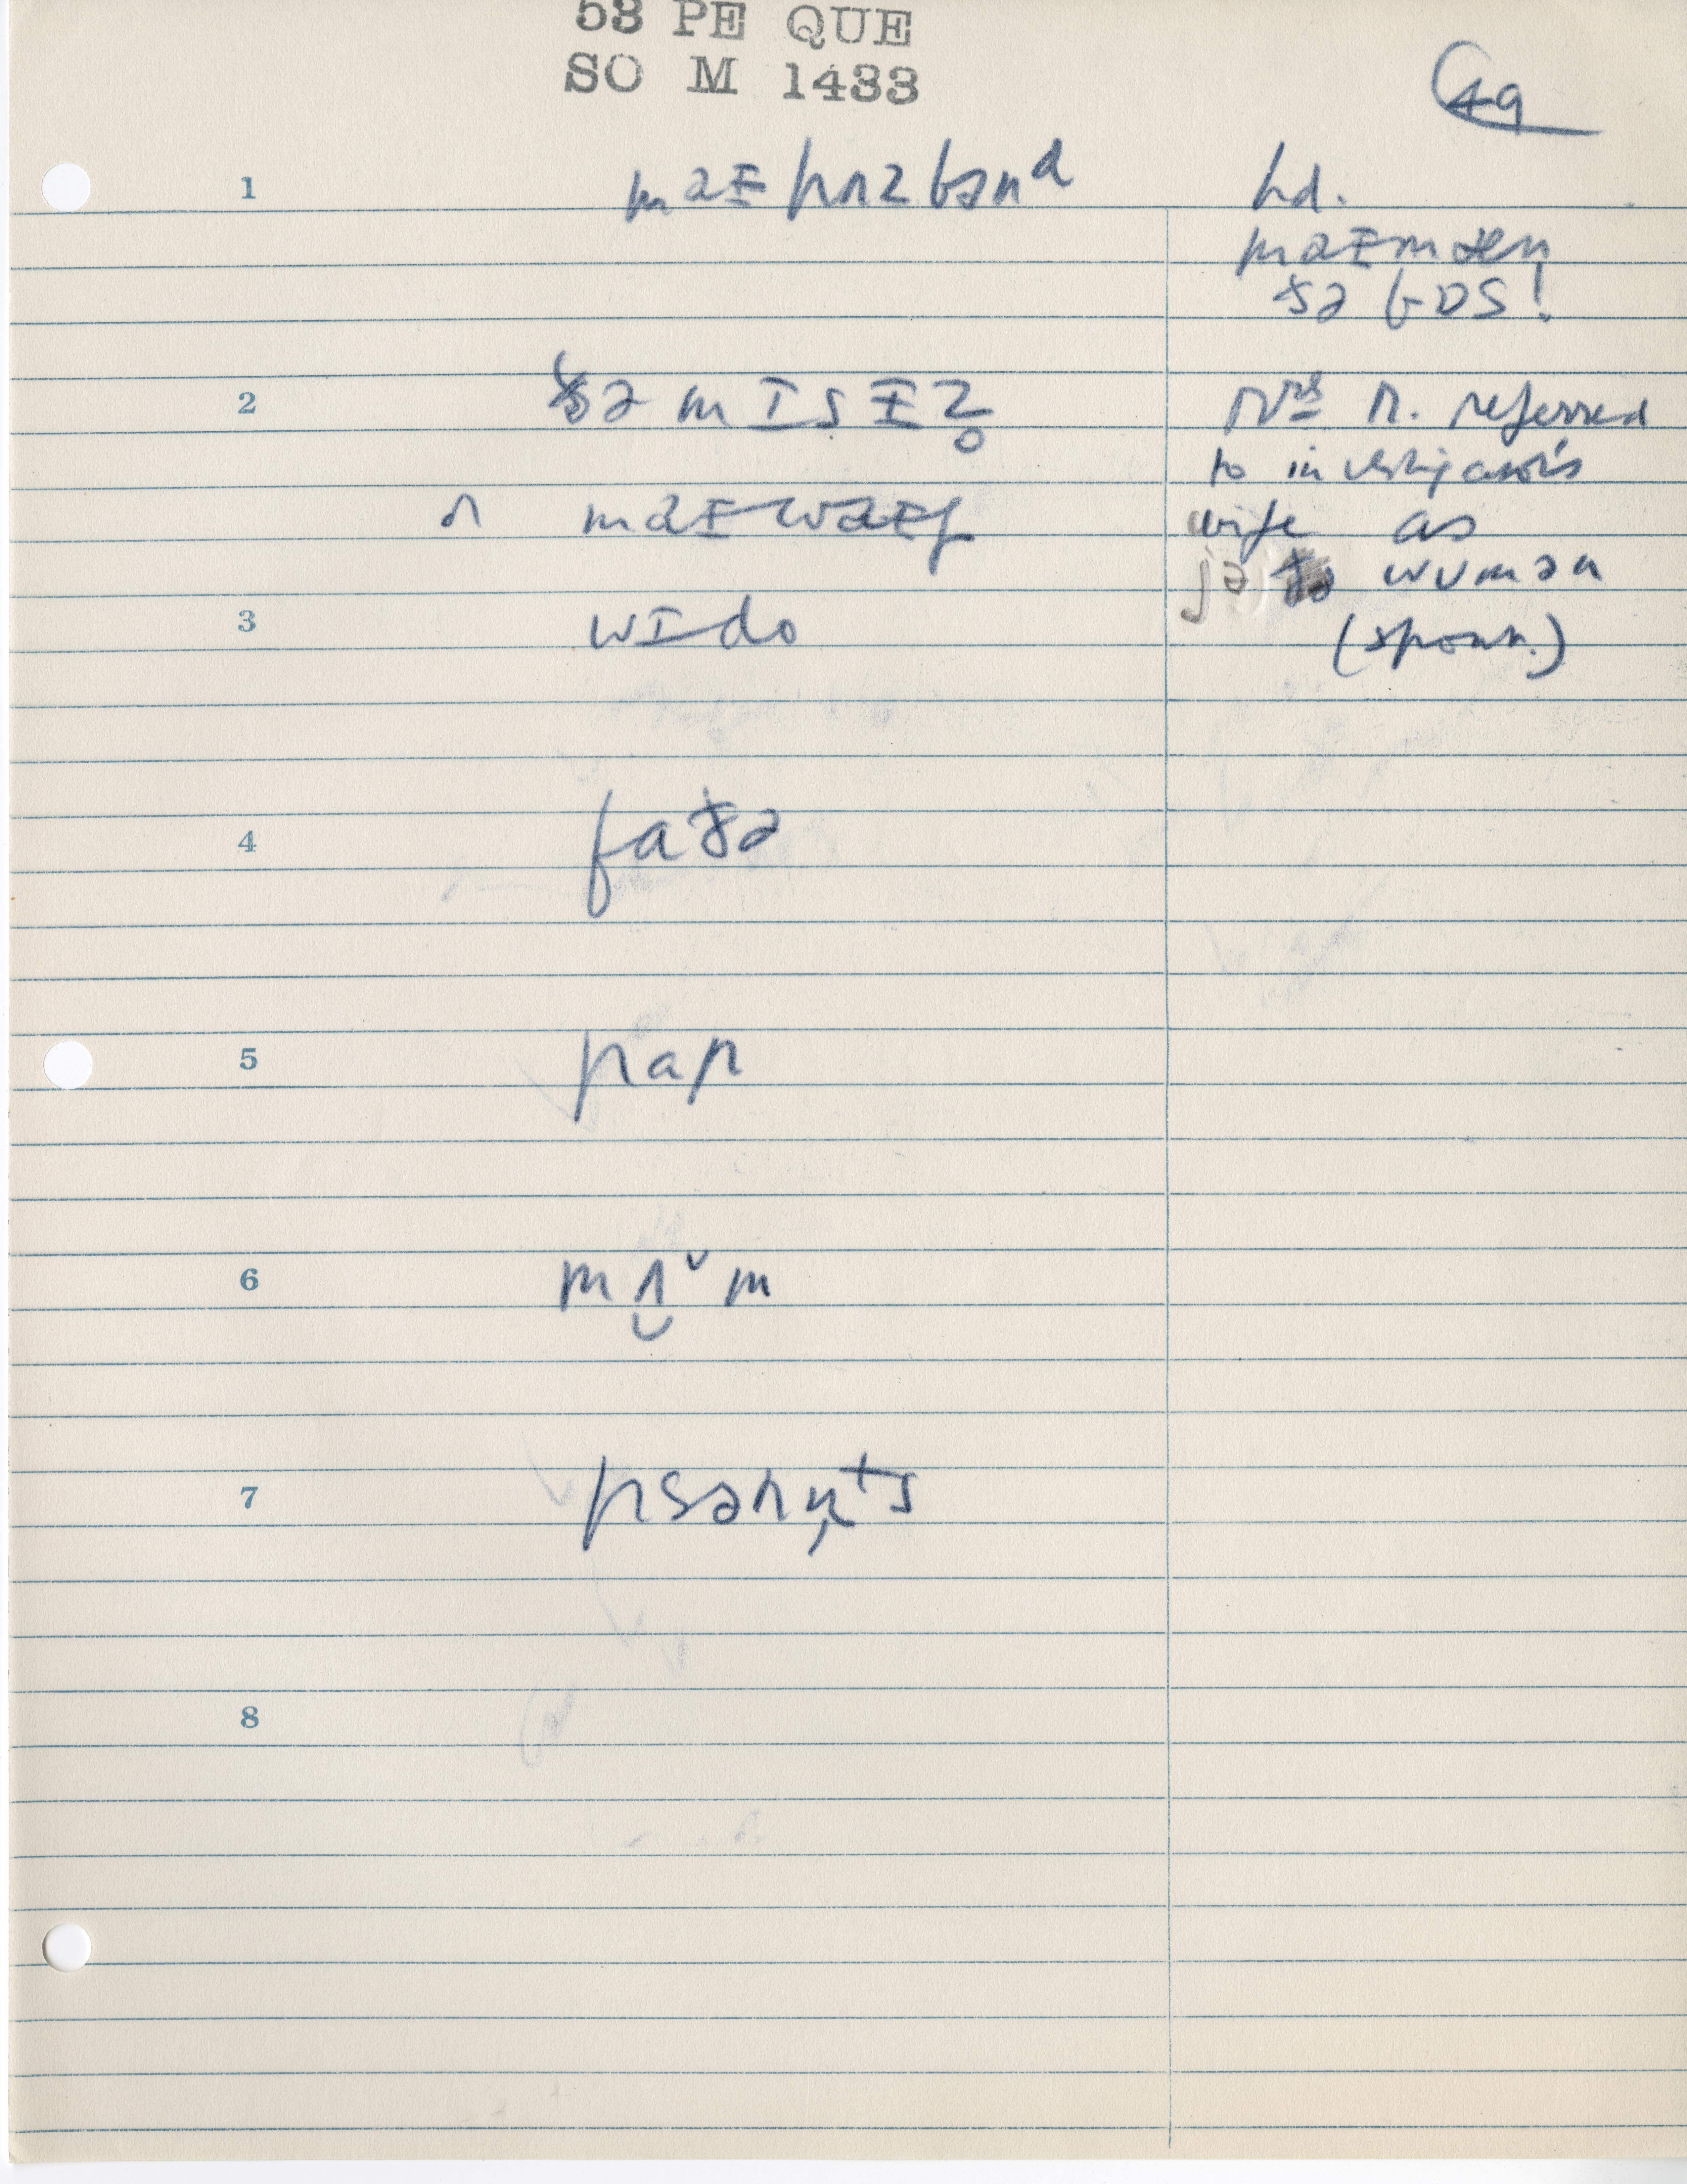 53 PE QUE
SO M 1433
49
1 maɪ hʌzbənᵈ hd.
maɪ mæn
ðə bɒs!
2 ðə mɪsɪz̥ Mrs R. referred
to investigator's
ʌ maɪ waɪf wife as
ðə wumən
3 wɪdo (spont.)
4 faðə
5 pap
6 mʌ̮ˇm
7
8